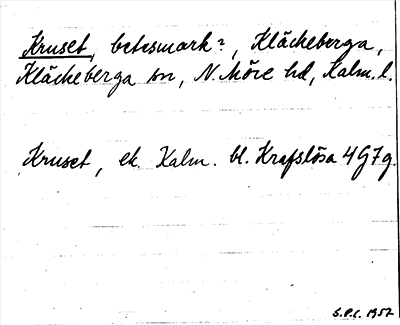 Kruset, betesmark?, Kläckeberga,
Kläckeberga sn, N. Möre hd, Kalm. l.
Kruset, ek Kalm. bl. Krafslösa 4G7g.
S.P.C. 1957